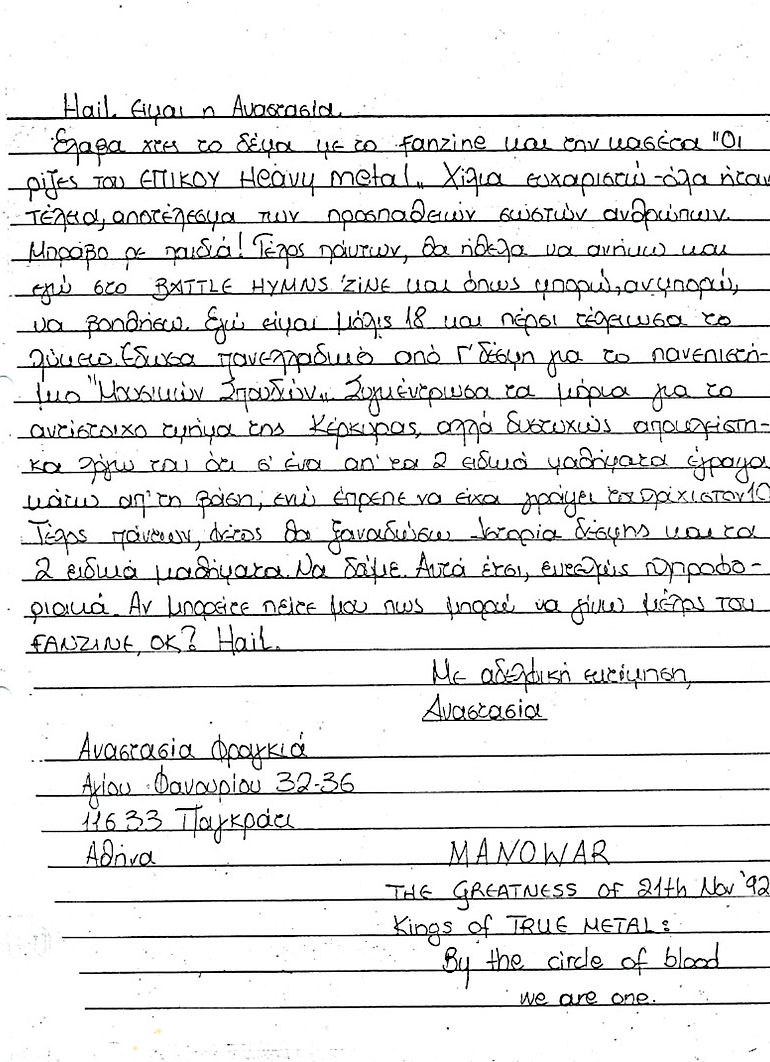 Hail. Ειμαι η Αναστασία.
Έλαβα χτες το δέμα με το fanzine και την κασέτα "Οι
ρίζες του ΕΠΙΚΟΥ Heavy metal„ Χίλια ευχαριστώ-όλα ήταν
τέλεια, αποτέλεσμα των προσπαθειών σωστών ανθρώπων.
Μπράβο ρε παιδιά! Τέλος πάντων, θα ήθελα να ανήκω και
εγώ στο BATTLE HYMNS 'ZINE και όπως μπορώ, αν μπορώ,
να βοηθήσω. Εγώ είμαι μόλις 18 και πέρσι τέλειωσα το
λύκειο. Έδωσα πανελλαδικά από Γ' δέσμη για το πανεπιστή-
μιο "Μουσικών Σπουδών„. Συγκέντρωσα τα μόρια για το
αντίστοιχο τμήμα της Κέρκυρας, αλλά δυστυχώς αποκλείστη-
κα λόγω του ότι σ' ένα απ' τα 2 ειδικά μαθήματα έγραψα
κάτω απ' τη βάση, ενώ έπρεπε να είχα γράψει τουλάχιστον 10
Τέλος πάντων, φέτος θα ξαναδώσω Ιστορία δέσμης και τα
2 ειδικά μαθήματα. Να δούμε. Αυτά έτσι, εντελώς πληροφο-
ριακά. Αν μπορείτε πείτε μου πως μπορώ να γίνω μέλος του
FANZINE, OK? Hail.
Με αδελφική εκτίμηση,
Αναστασία
Αναστασία Φραγκιά
Αγίου Φανουρίου 32-36
11633 Παγκράτι
Αθήνα
MANOWAR
THE GREATNESS OF 21th Nov '92
Kings of TRUE METAL:
By the circle of blood
we are one.